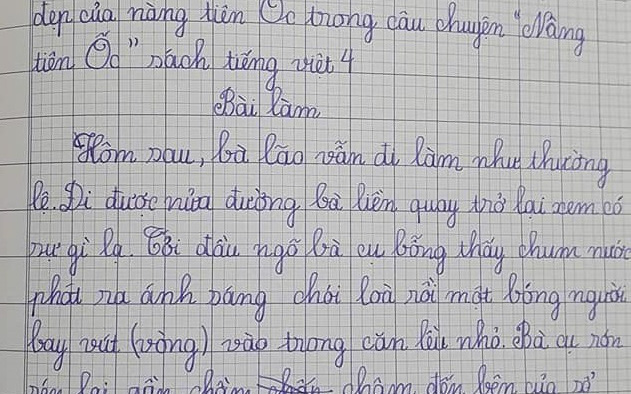 đẹp của nàng tiên Ốc trong câu chuyện "Nàng
tiên Ốc" sách tiếng việt 4
Bài làm
Hôm sau, bà lão vẫn đi làm như thường
lệ. Đi được nửa đường bà liền quay trở lại xem có
sự gì lạ. Tới đầu ngõ bà cụ bỗng thấy chum nước
phát ra ánh sáng chói loà rồi một bóng người
bay vút (vòng) vào trong căn lều nhỏ. Bà cụ rón
rén lại gần chầm chậm đến bên cửa sổ